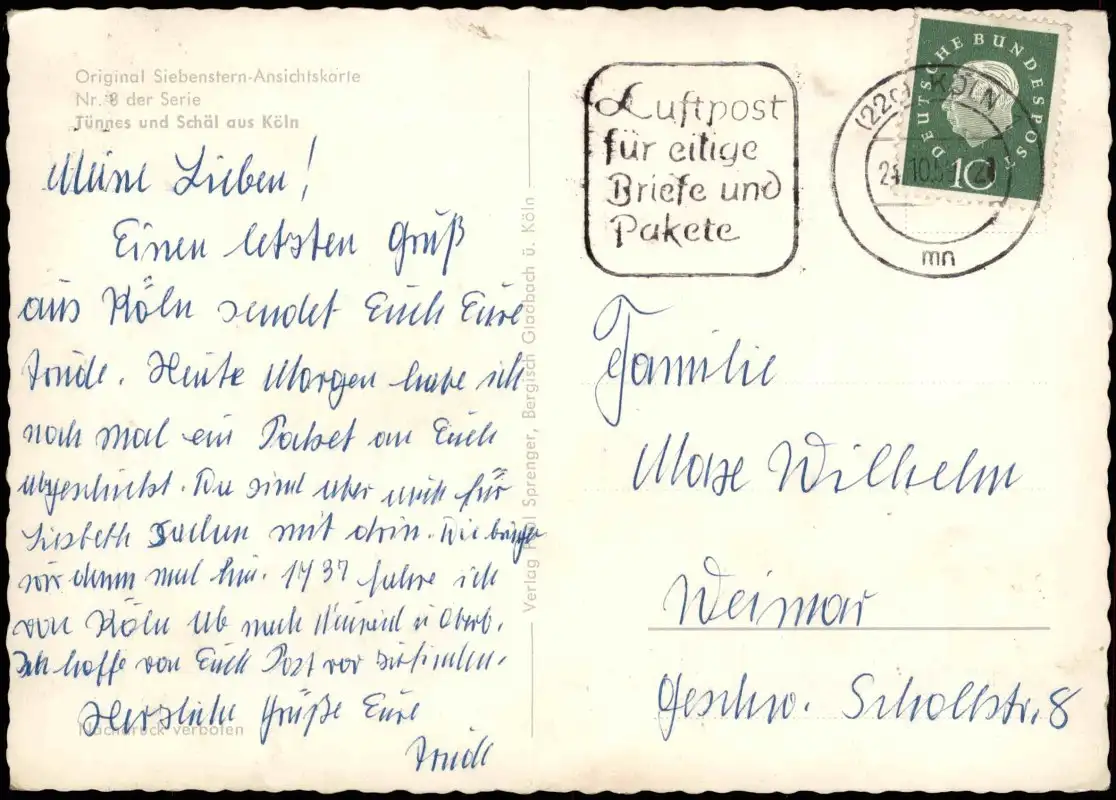 Original Siebenstern-Ansichtskarte
Nr. 8 der Serie
Tünnes und Schäl aus Köln
Meine Lieben!
Einen letzten Gruß
aus Köln sendet Euch Eure
Trude. Heute Morgen habe ich
noch mal ein Paket an Euch
abgeschickt. Da sind aber auch für
Liesbeth Sachen mit drin. Die bringen
wir dann mal hin. 1737 fahre ich
von Köln ab nach Neuwied u Oberb.
Ich hoffe von Euch Post vor zu finden.
Herzliche Grüße Eure
Trude
Nachdruck verboten
Verlag Sprenger, Bergisch Gladbach ü. Köln
Luftpost
für eilige
Briefe und
Pakete
(22c) KÖLN
10.59
mn
DEUTSCHE BUNDESPOST
10
Familie
Max Wilhelm
Weimar
Geschw. Schollstr. 8